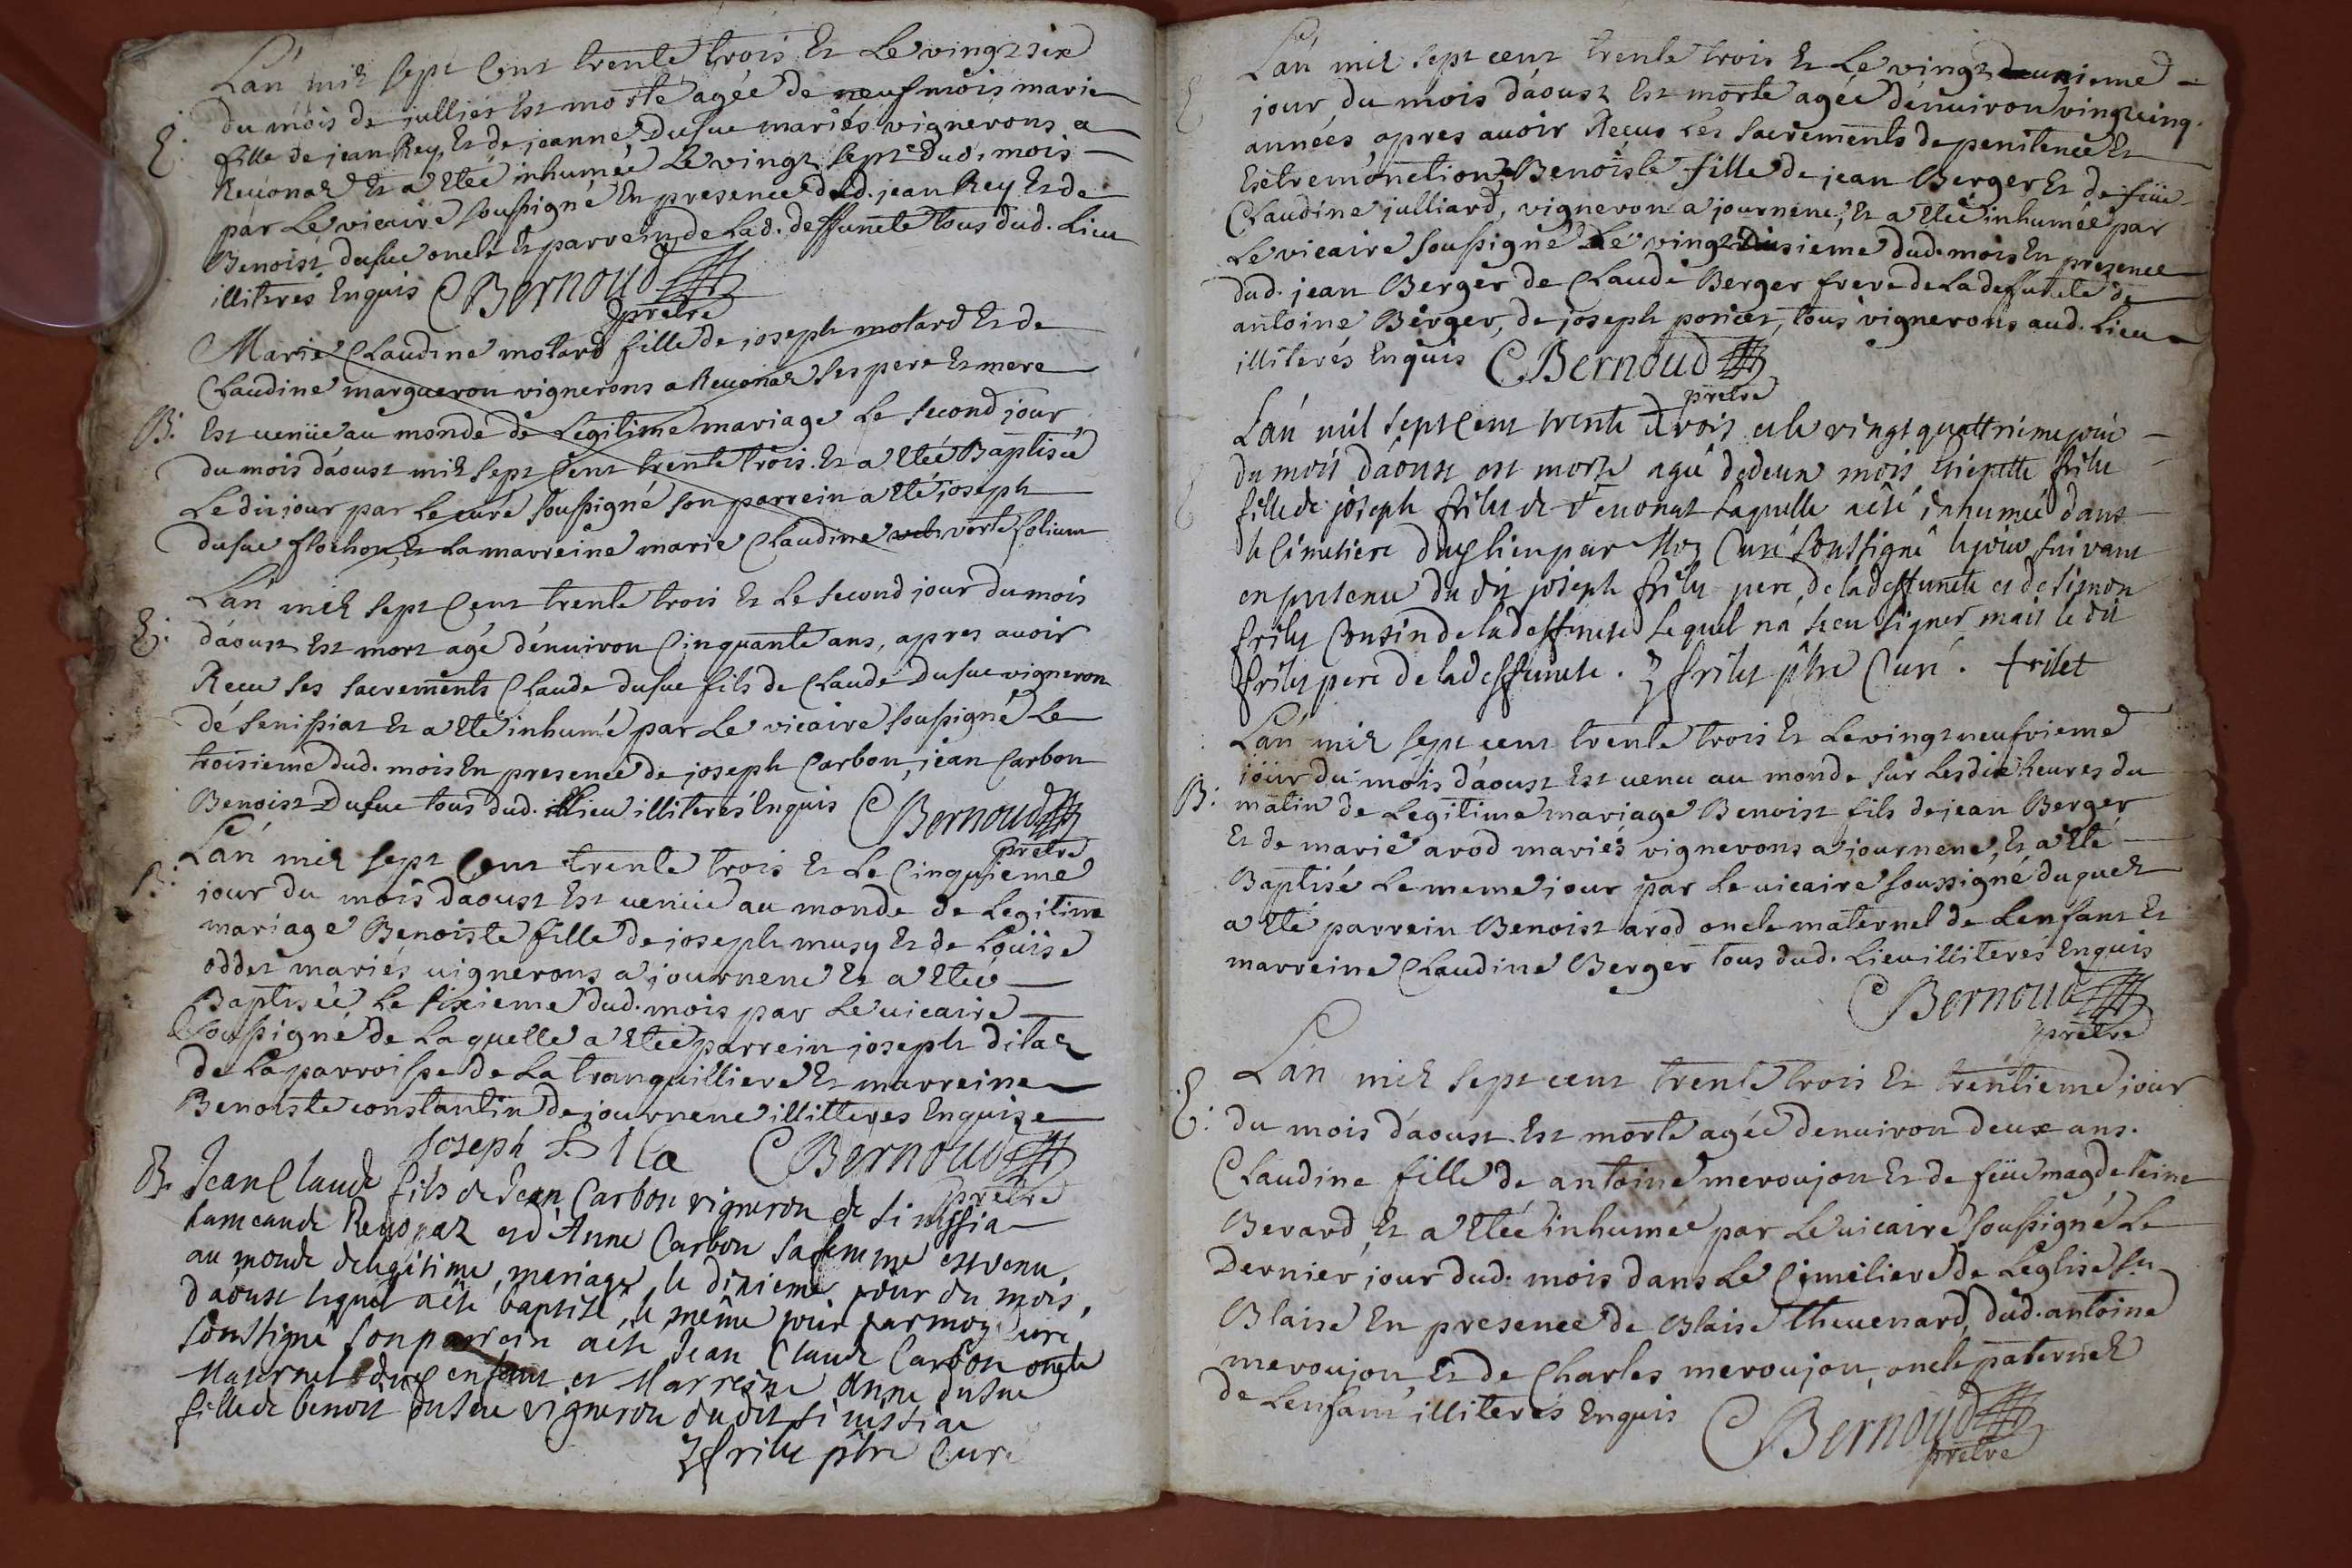 Lan mil sept Cent trente trois Et Le vingt six
du mois de jullier Est morte agée de neuf mois marie
E: fille de jean Rey, Et de jeanne, Dufue mariés vignerons a
Reuonaz Et a Etée inhumée Le vingt sept dud. mois
par Le vicaire soussigné En presence dud. jean Rey Et de
Benoist dufue oncle Et parrein de Lad. deffuncte tous dud. Lieu
illiterés Enquis CBernoud
prêtre
Marie Claudine motard fille de joseph motard Et de
Claudine margueron vignerons a Reuonaz ses pere Et mere
B: Est venüe au monde de Legitime mariage Le second jour
du mois d'aoust mil sept Cent trente trois. Et a Etée Baptisée
Le dit jour par Le curé soussigné son parrein a Eté joseph
dufue flochon, Et La marreine marie Claudine verte folium
Lan mil sept Cent trente trois Et Le second jour du mois
E: d'aoust Est mort agé d'enuiron Cinquante ans, apres auoir
Receu ses sacrements Claude dufue fils de Claude Dufue vigneron
de senissiat Et a Eté inhumé par Le vicaire soussigné Le
troisieme dud. mois En presence de joseph Carbon, jean Carbon
Benoist Dufue tous dud. Lieu illiterés Enquis CBernoud
prêtre
Lan mil sept Cent trente trois Et Le Cinquieme
B: jour du mois d'aoust Est venüe au monde de Legitime
mariage Benoiste fille de joseph musy Et de Loüise
oddet mariés vignerons a journene Et a Etée
Baptisée Le sixieme dud. mois par Le vicaire
soussigné de Laquelle a Etée parrein joseph dilaz
de La parroisse de La tranquilliere Et marreine
Benoiste constantin de journene illitteres Enquise
joseph Dila CBernoud
prêtre
B. Jean Claude fils de Jean Carbon vigneron de sinissia
hameau de Reuonaz et d'Anne Carbon sa femme est venu
au monde de legitime mariage le dixieme jour du mois
d'aoust lequel a esté baptisé le même jour par moy Curé
soussigné son parrein a esté Jean Claude Carbon oncle
Maternel enfant et Marreine Anne dufue
fille de benoit dufue vigneron du dit sinissiat
frilet pbre Curé
Lan mil sept cent trente trois Et Le vingt deuxieme
E jour, du mois d'aoust Est morte agée d'enuiron vingtcinq.
années apres auoir Receus Les sacrements de penitence Et
Extremonction, Benoiste fille de jean Berger Et de feüe
Claudine julliard, vigneron a journene, Et a Etée inhumée par
Le vicaire soussigné Le vingt dud. mois En presence
dud. jean Berger de Claude Berger frere de La defuncte de
antoine Berger, de joseph tous vignerons aud. Lieu
illiterés Enquis CBernoud
prêtre
Lan mil sept Cent trente trois et le vingt quattrieme jour
du mois d'aoust est morte agée de deux mois frilet
fille de joseph frilet de Reuonat laquelle a esté inhumée dans
le Cimetiere par Moy Curé soussigné le jour suivant
en presence du dit joseph frilet pere de la deffuncte et de simon
frilet Cousin de la deffuncte lequel n'a sceu signer mais le dit
frilet pere de la deffuncte. frilet pbre Curé. frilet
Lan mil sept cent trente trois Et Le vingt neufvieme
jour du mois d'aoust Est venu au monde sur Les dix heures du
B: matin de Legitime mariage Benoist fils de jean Berger
Et de marie arod mariés vignerons a journene, Et a Eté
Baptisé Le meme jour par Le vicaire soussigné duquel
a Eté parrein Benoist arod oncle maternel de Lenfant Et
marreine Claudine Berger tous dud. Lieu illiterés Enquis
CBernoud
prêtre
Lan mil sept cent trente trois Et trentieme jour
E: du mois d'aoust Est morte agée denuiron deux ans.
Claudine fille de antoine meroujon Et de feüe magdeleine
Berard, Et a Etée inhumée par Le vicaire soussigné Le
Dernier jour dud. mois dans Le Cimetiere de Leglise St
Blaise En presence de Blaise theuenard, dud. antoine
meroujon Et de Charles meroujon, oncle paternel
de Lenfant illiterés Enquis CBernoud
prêtre